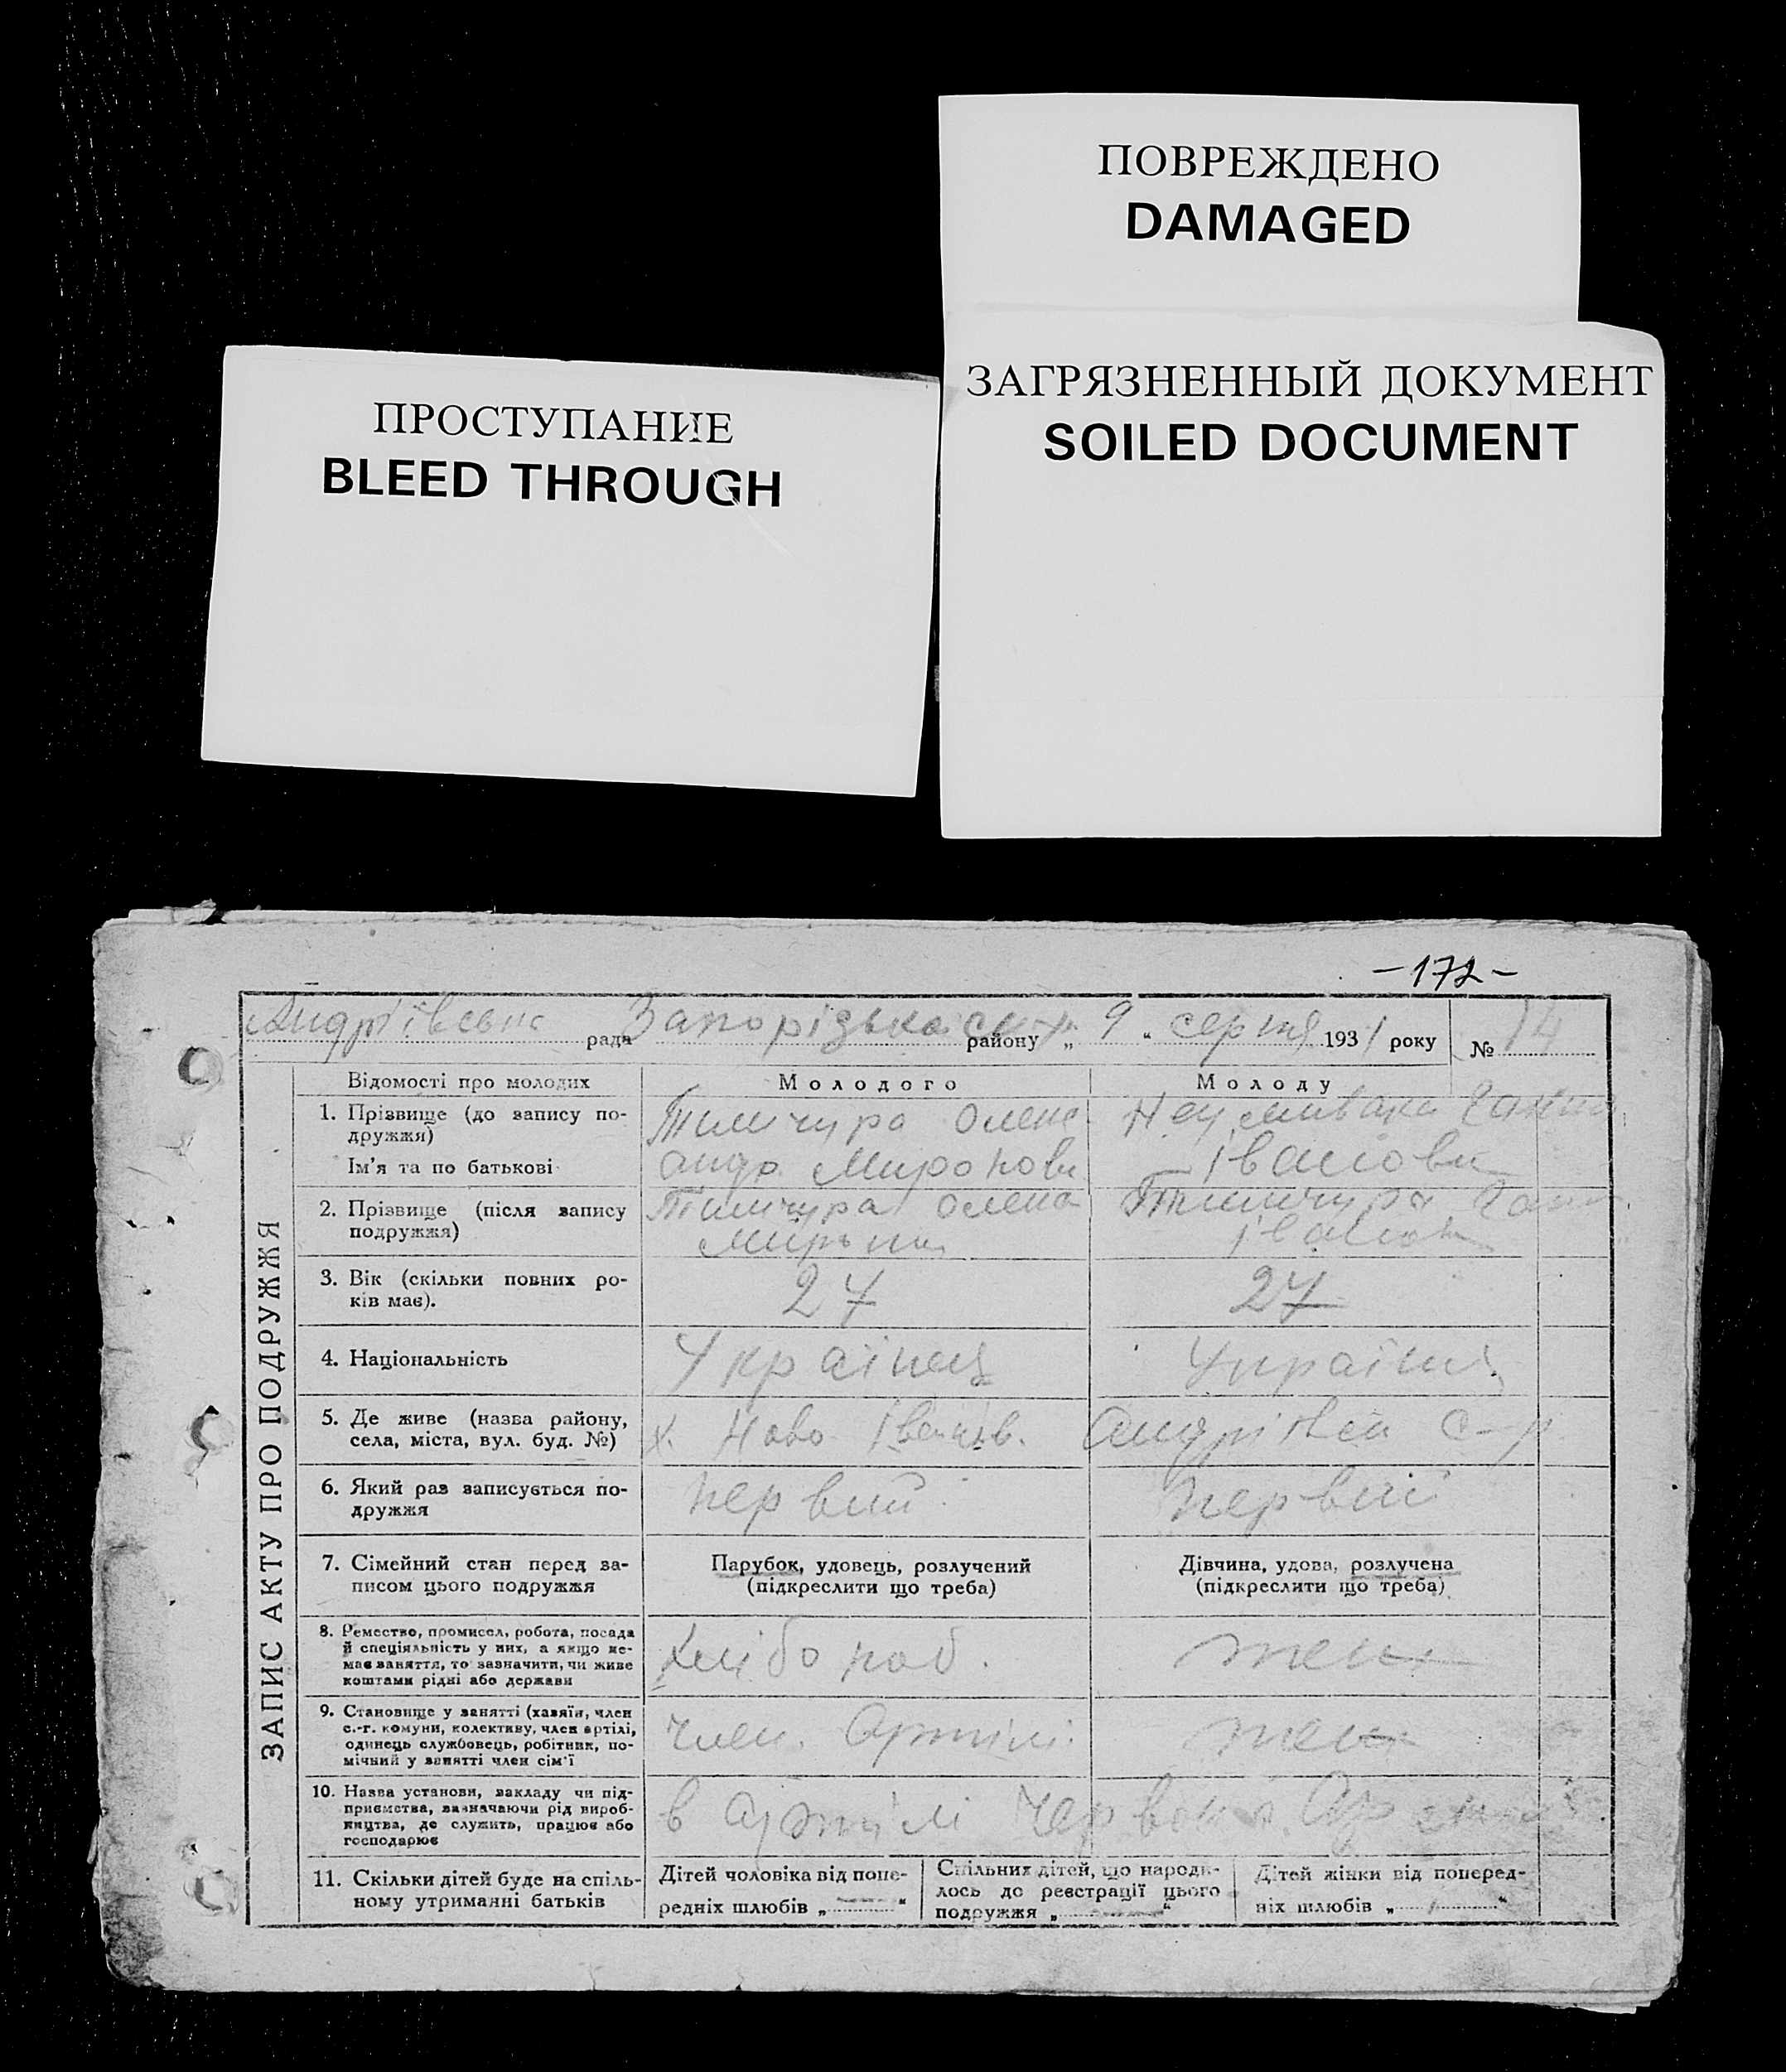 ПОВРЕЖДЕНО
DAMAGED
ЗАГРЯЗНЕННЫЙ ДОКУМЕНТ
SOILED DOCUMENT
ПРОСТУПАНИЕ
BLEED THROUGH
-172-
рада Запорізька району „ 9 " серпня 1931 року № 14
ЗАПИС АКТУ ПРО ПОДРУЖЖЯ
Відомості про молодих Молодого Молоду
1. Прізвище (до запису по-
дружжя)
Тимчура Олек Неумивака Ганна
Ім'я та по батькові
андр. Миронови Іванови
2. Прізвище (після запису
подружжя)
Тимчура Олекса Тимчура Ганн
Іванов
3. Вік (скільки повних ро-
ків має).
27 27
4. Національність Українец Українц
5. Де живе (назва району,
села, міста, вул. буд. №)
х. Ново Іванів. Андріївка С-р
6. Який раз записується по-
дружжя
первий первий
7. Сімейний стан перед за-
писом цього подружжя
Парубок, удовець, розлучений
(підкреслити що треба)
Дівчина, удова, розлучена
(підкреслити що треба)
8. Ремество, промисел, робота, посада
й спеціяльність у них, а якщо не-
має заняття, то зазначити, чи живе
коштами рідні або держави
хлібороб.
9. Становище у занятті (хазяїн, член
с.-г. комуни, колективу, член артілі,
одинець службовець, робітник, по-
мічний у занятті член сім'ї
член. Артілі.
10. Назва установи, закладу чи під-
приємства, зазначаючи рід вироб-
ництва, де служить, працює або
господарює
в Артілі Червон
11. Скільки дітей буде на спіль-
ному утриманні батьків
Дітей чоловіка від попе-
редніх шлюбів „ — "
Спільних дітей, що народи-
лось до реєстрації цього
подружжя „ — "
Дітей жінки від поперед-
ніх шлюбів „ 1 "